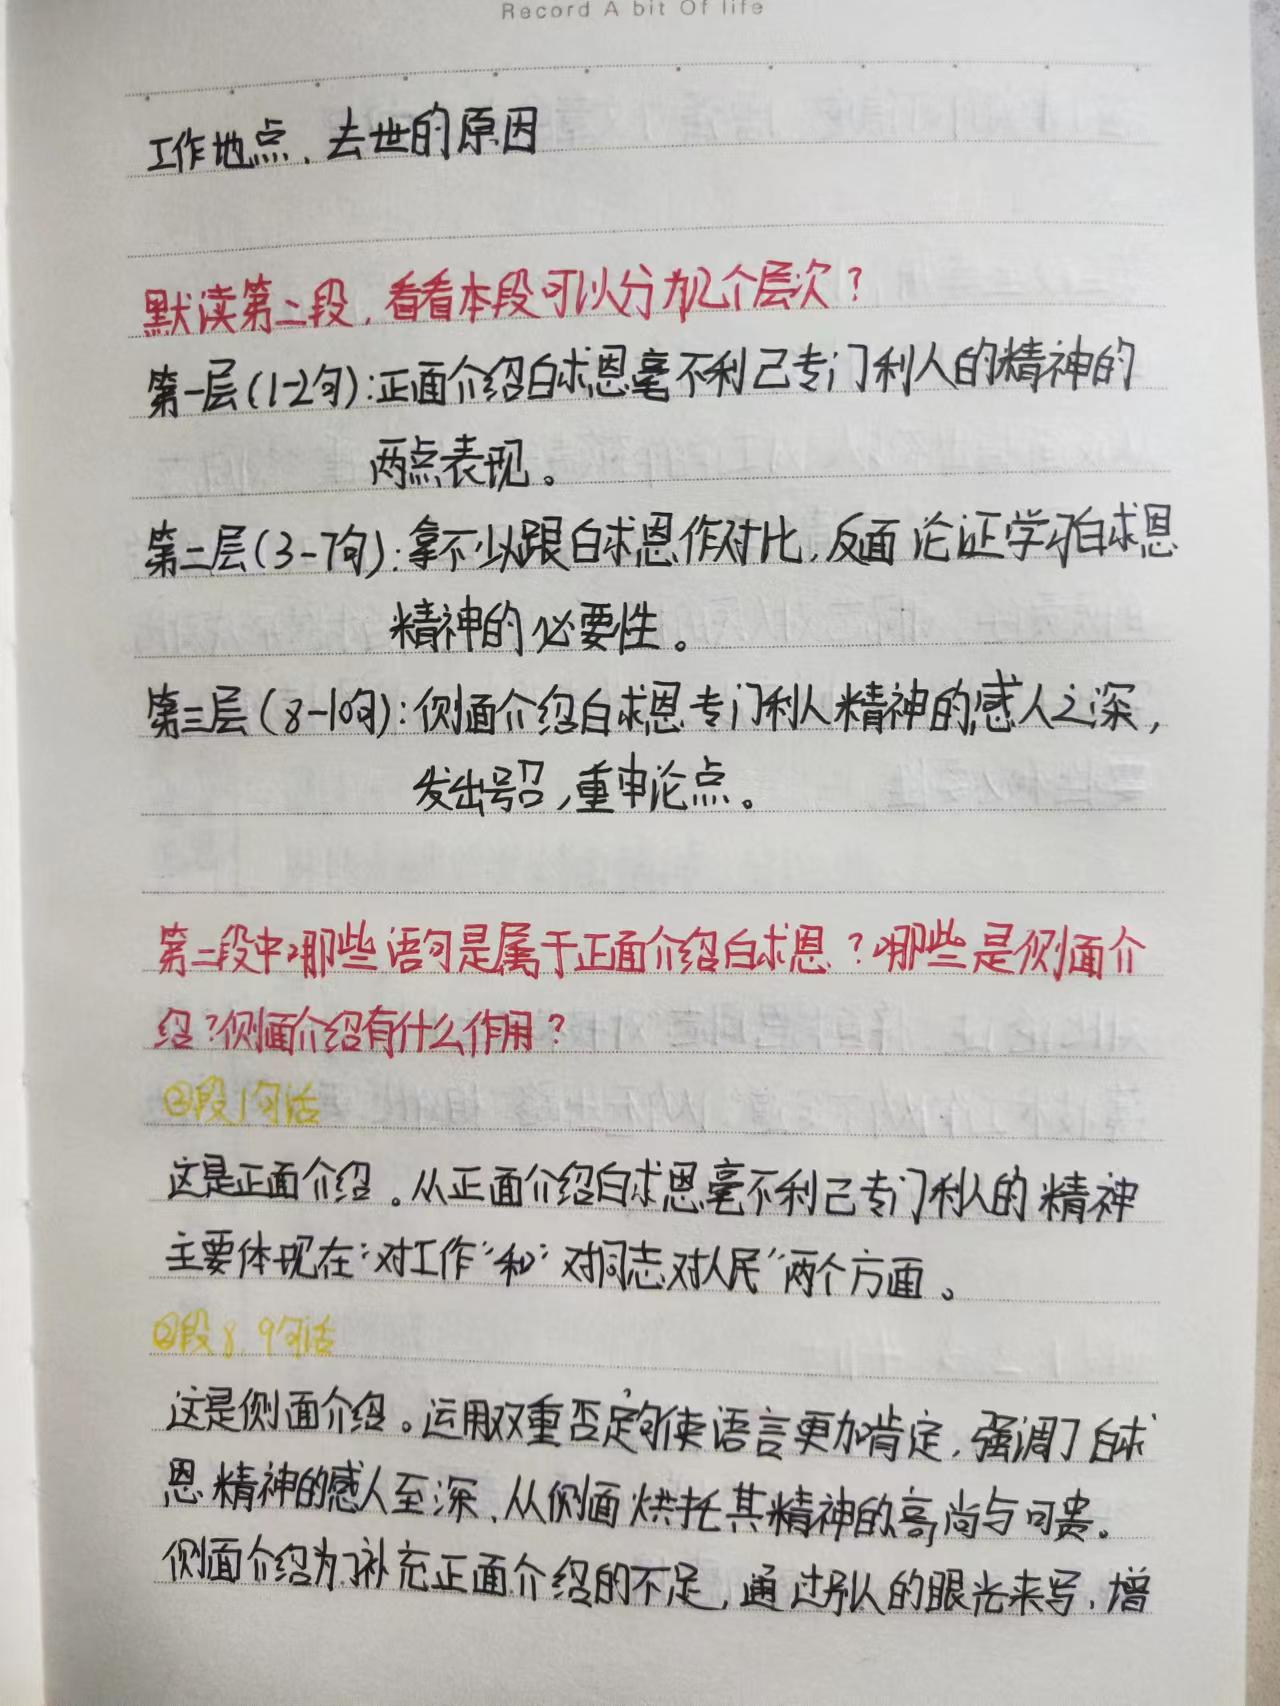 Record A bit Of life
工作地点、去世的原因
默读第二段,看看本段可以分为几个层次?
第一层(1-2句):正面介绍白求恩毫不利己专门利人的精神的
两点表现。
第二层(3-7句):拿不少以跟白求恩作对比,反面论证学习白求恩
精神的必要性。
第三层(8-10句):侧面介绍白求恩专门利人精神的感人之深,
发出号召,重申论点。
第二段中哪些语句是属于正面介绍白求恩?哪些是侧面介
绍?侧面介绍有什么作用?
②段1句话
这是正面介绍。从正面介绍白求恩毫不利己专门利人的精神
主要体现在“对工作”和“对同志对人民”两个方面。
②段8、9句话
这是侧面介绍。运用双重否定句使语言更加肯定,强调了白求
恩精神的感人至深、从侧面烘托其精神的高尚与可贵。
侧面介绍为了补充正面介绍的不足,通过别人的眼光来写、增